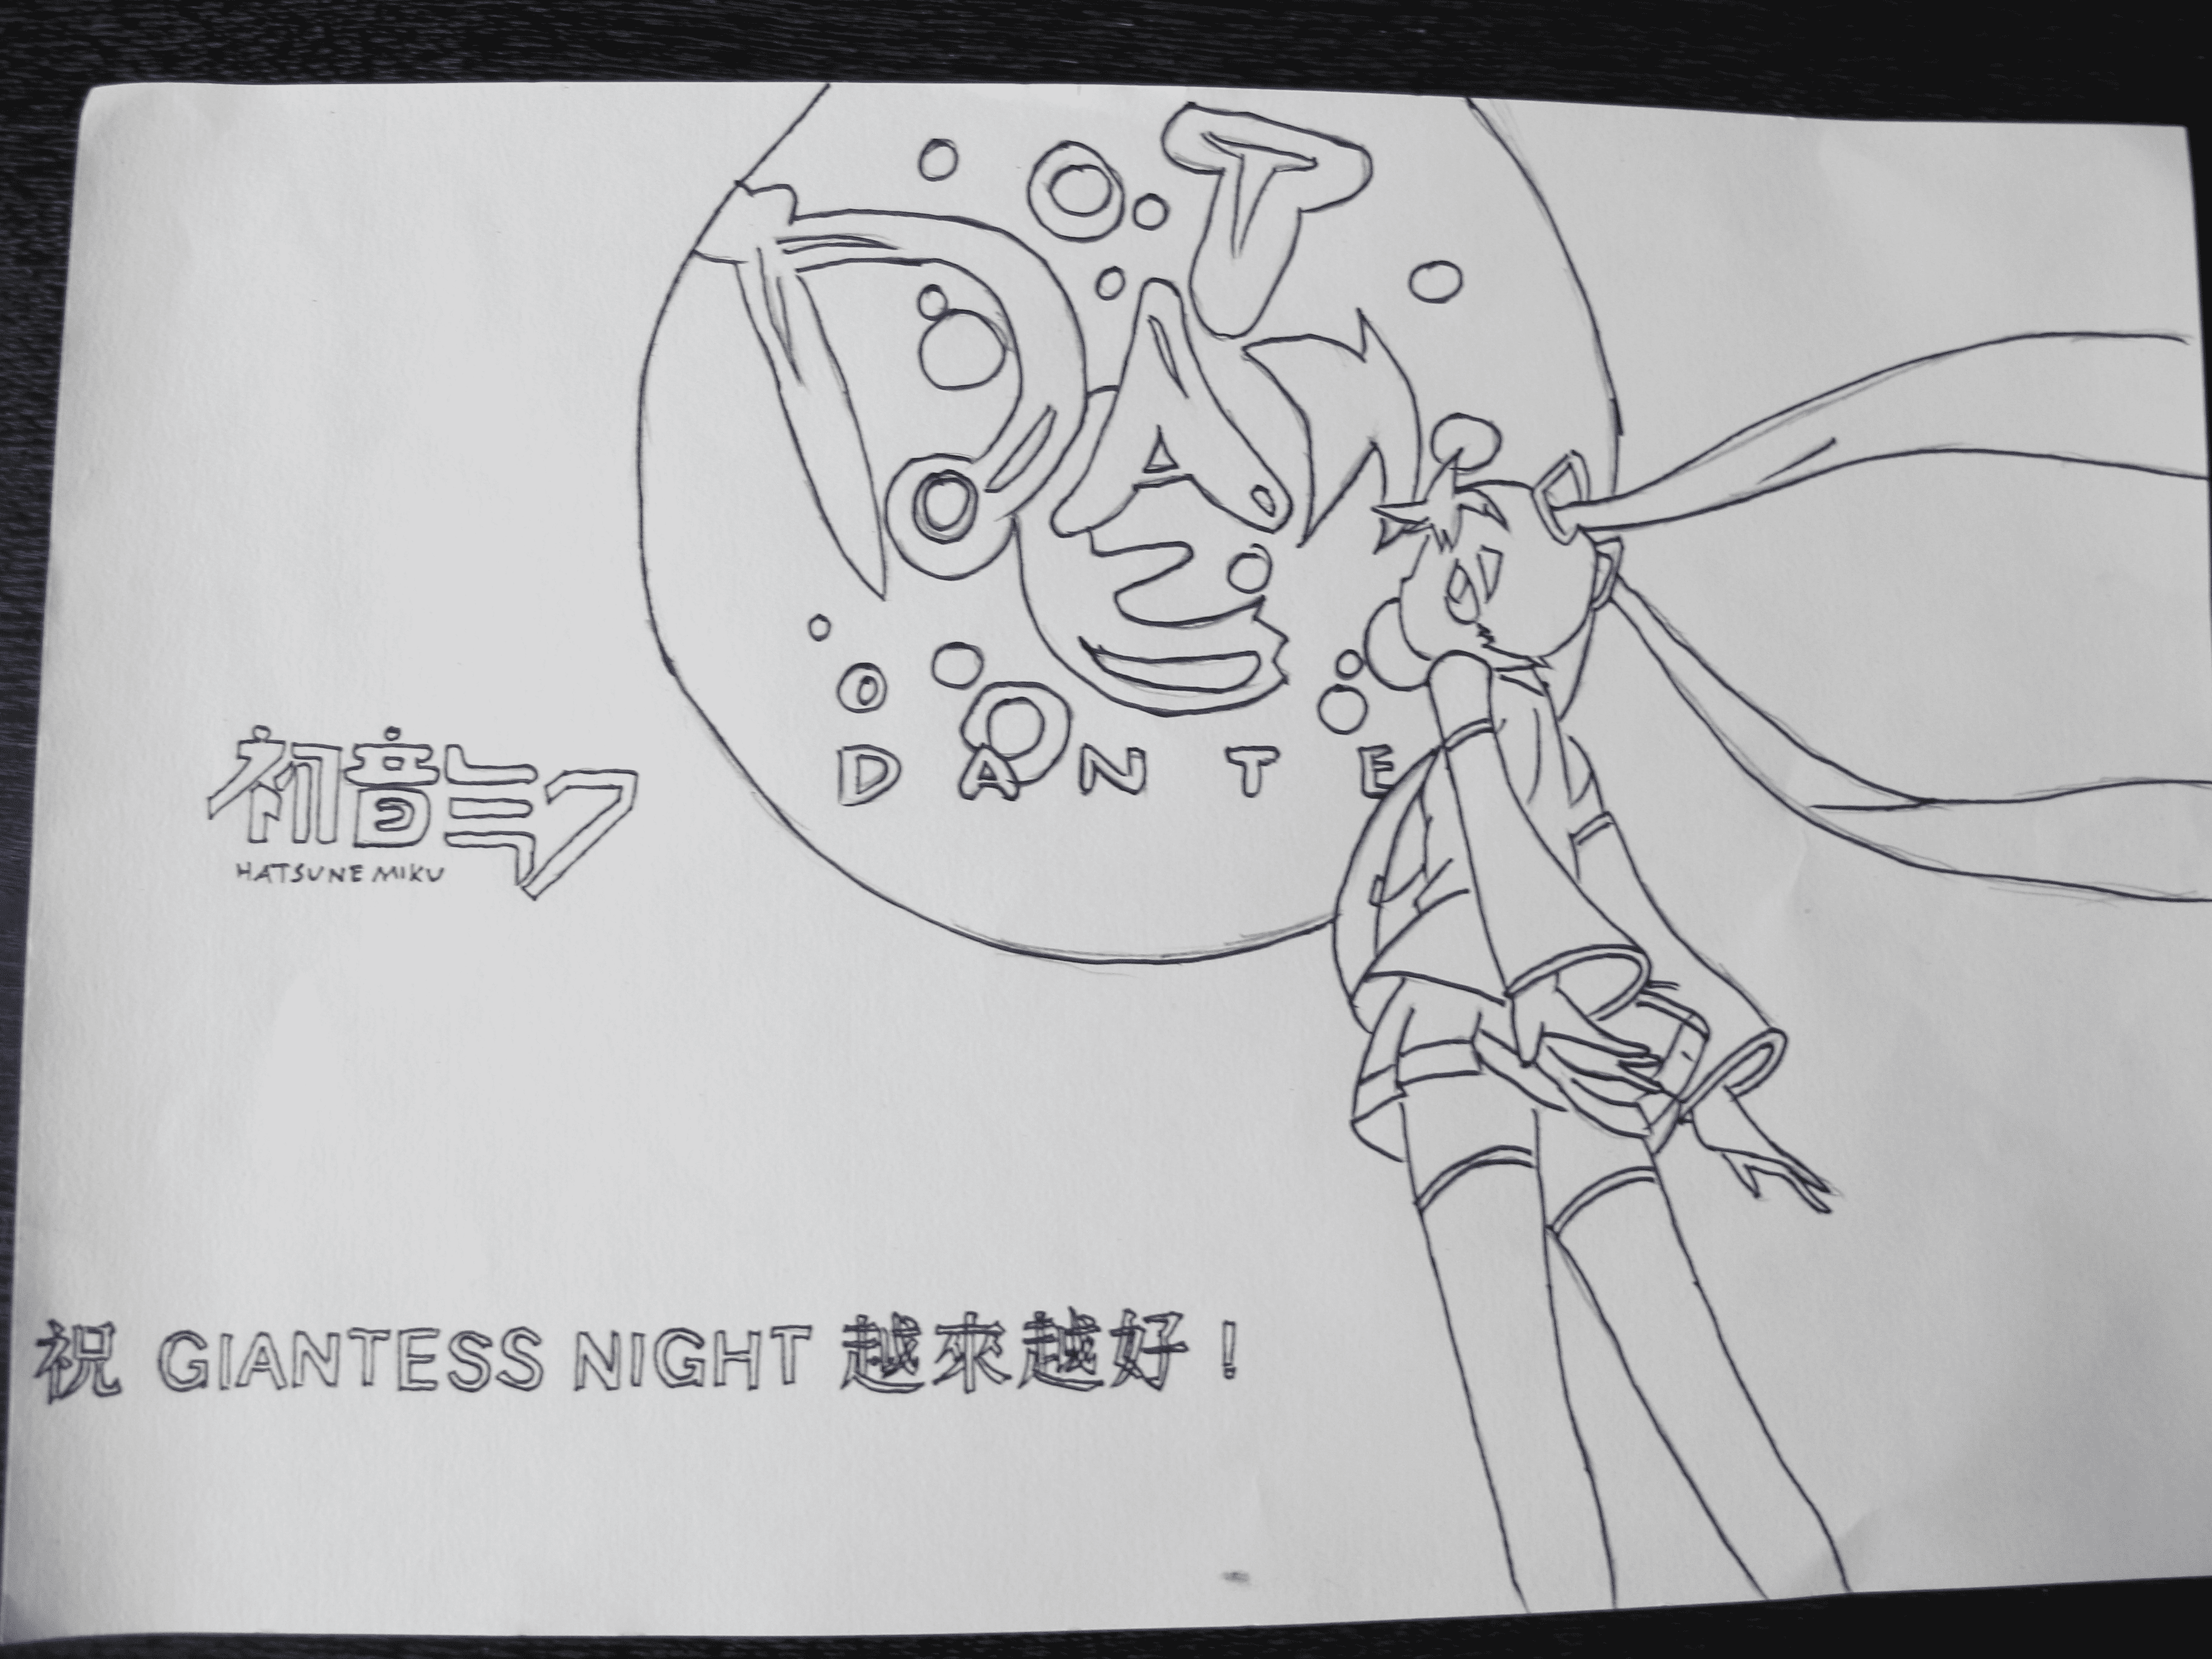 DANTE
初音ミク
HATSUNE MIKU
祝 GIANTESS NIGHT 越來越好！